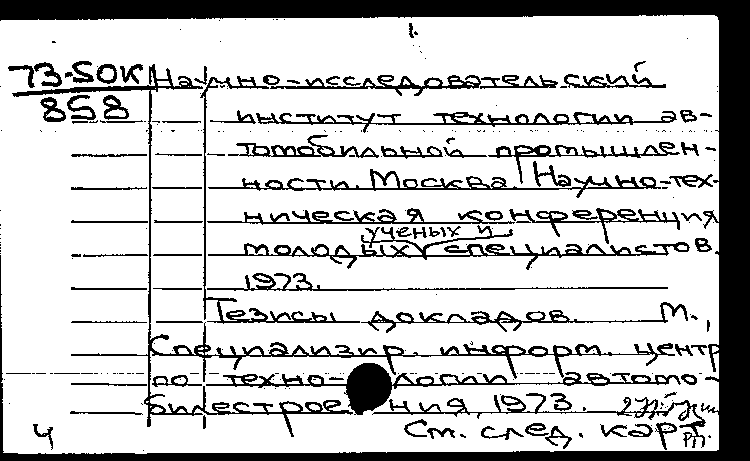 1.
73-50K Научно-исследовательский
858 институт технологии ав-
томобильной промышлен-
ности. Москва. Научно-тех-
ническая конференция
ученых и
молодых специалистов.
1973.
Тезисы докладов. М.,
Специализир. информ. центр
по техно-логии автомо-
билестроения, 1973.
4 См. след. карт.